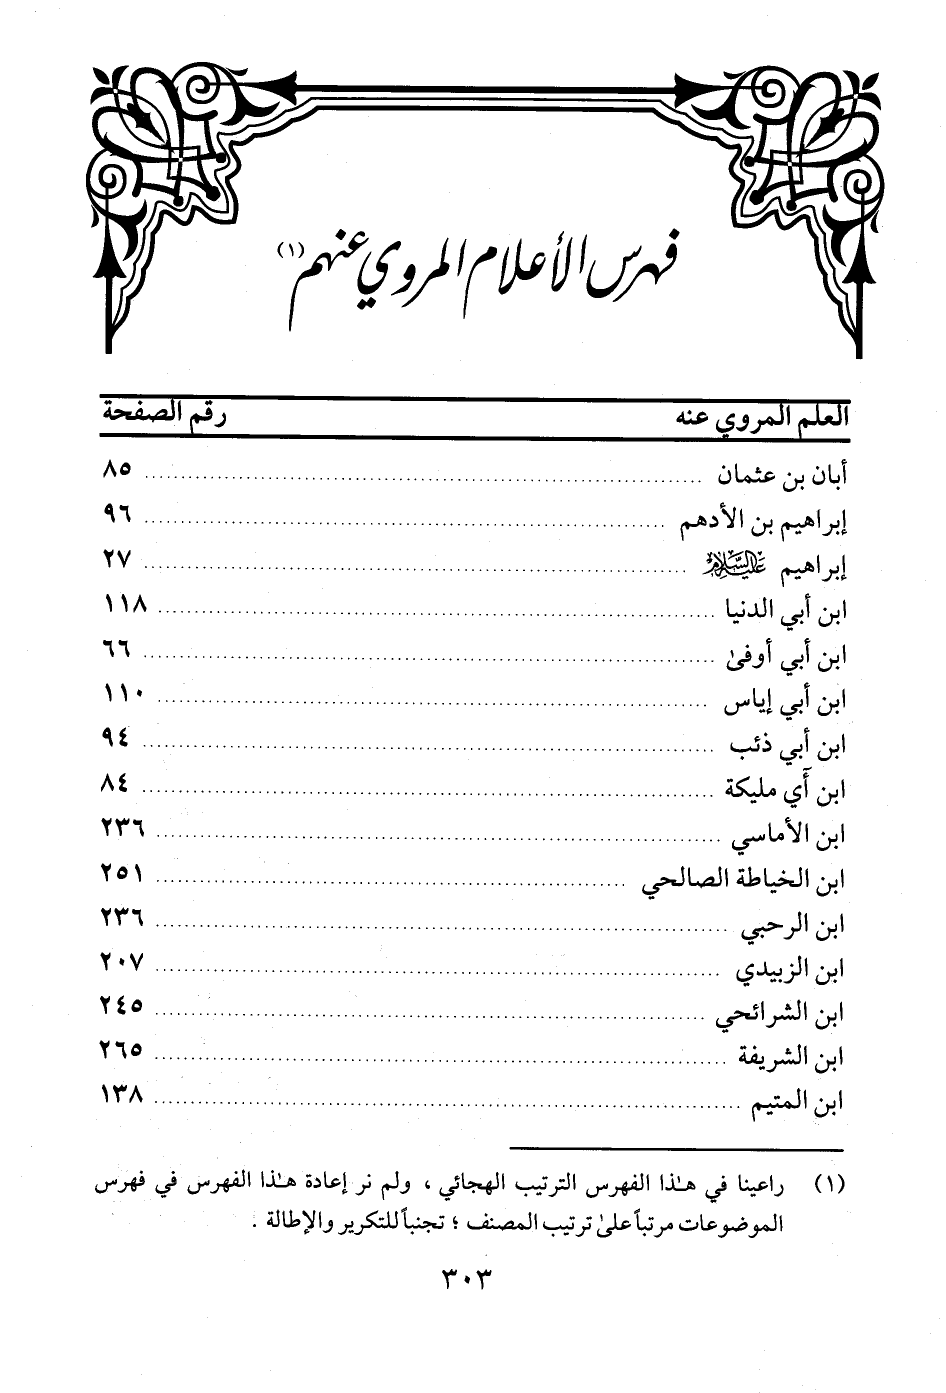 فهرس الأعلام المروي عنهم (١)
العلم المروي عنه رقم الصفحة
أبان بن عثمان ........ ٨٥
إبراهيم بن الأدهم ........ ٩٦
إبراهيم عليه السلام ........ ٢٧
ابن أبي الدنيا ........ ١١٨
ابن أبي أوفىٰ ........ ٦٦
ابن أبي إياس ........ ١١٠
ابن أبي ذئب ........ ٩٤
ابن أَي مليكة ........ ٨٤
ابن الأماسي ........ ٢٣٦
ابن الخياطة الصالحي ........ ٢٥١
ابن الرحبي ........ ٢٣٦
ابن الزبيدي ........ ٢٠٧
ابن الشرائحي ........ ٢٤٥
ابن الشريفة ........ ٢٦٥
ابن المتيم ........ ١٣٨
(١) راعينا في هـٰذا الفهرس الترتيب الهجائي ، ولم نر إعادة هـٰذا الفهرس في فهرس
الموضوعات مرتباً علىٰ ترتيب المصنف ؛ تجنباً للتكرير والإطالة .
٣٠٣